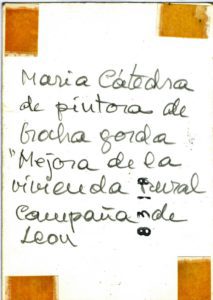 Maria Cátedra
de pintora de
brocha gorda
"Mejora de la
vivienda rural
Campaña de
Leon